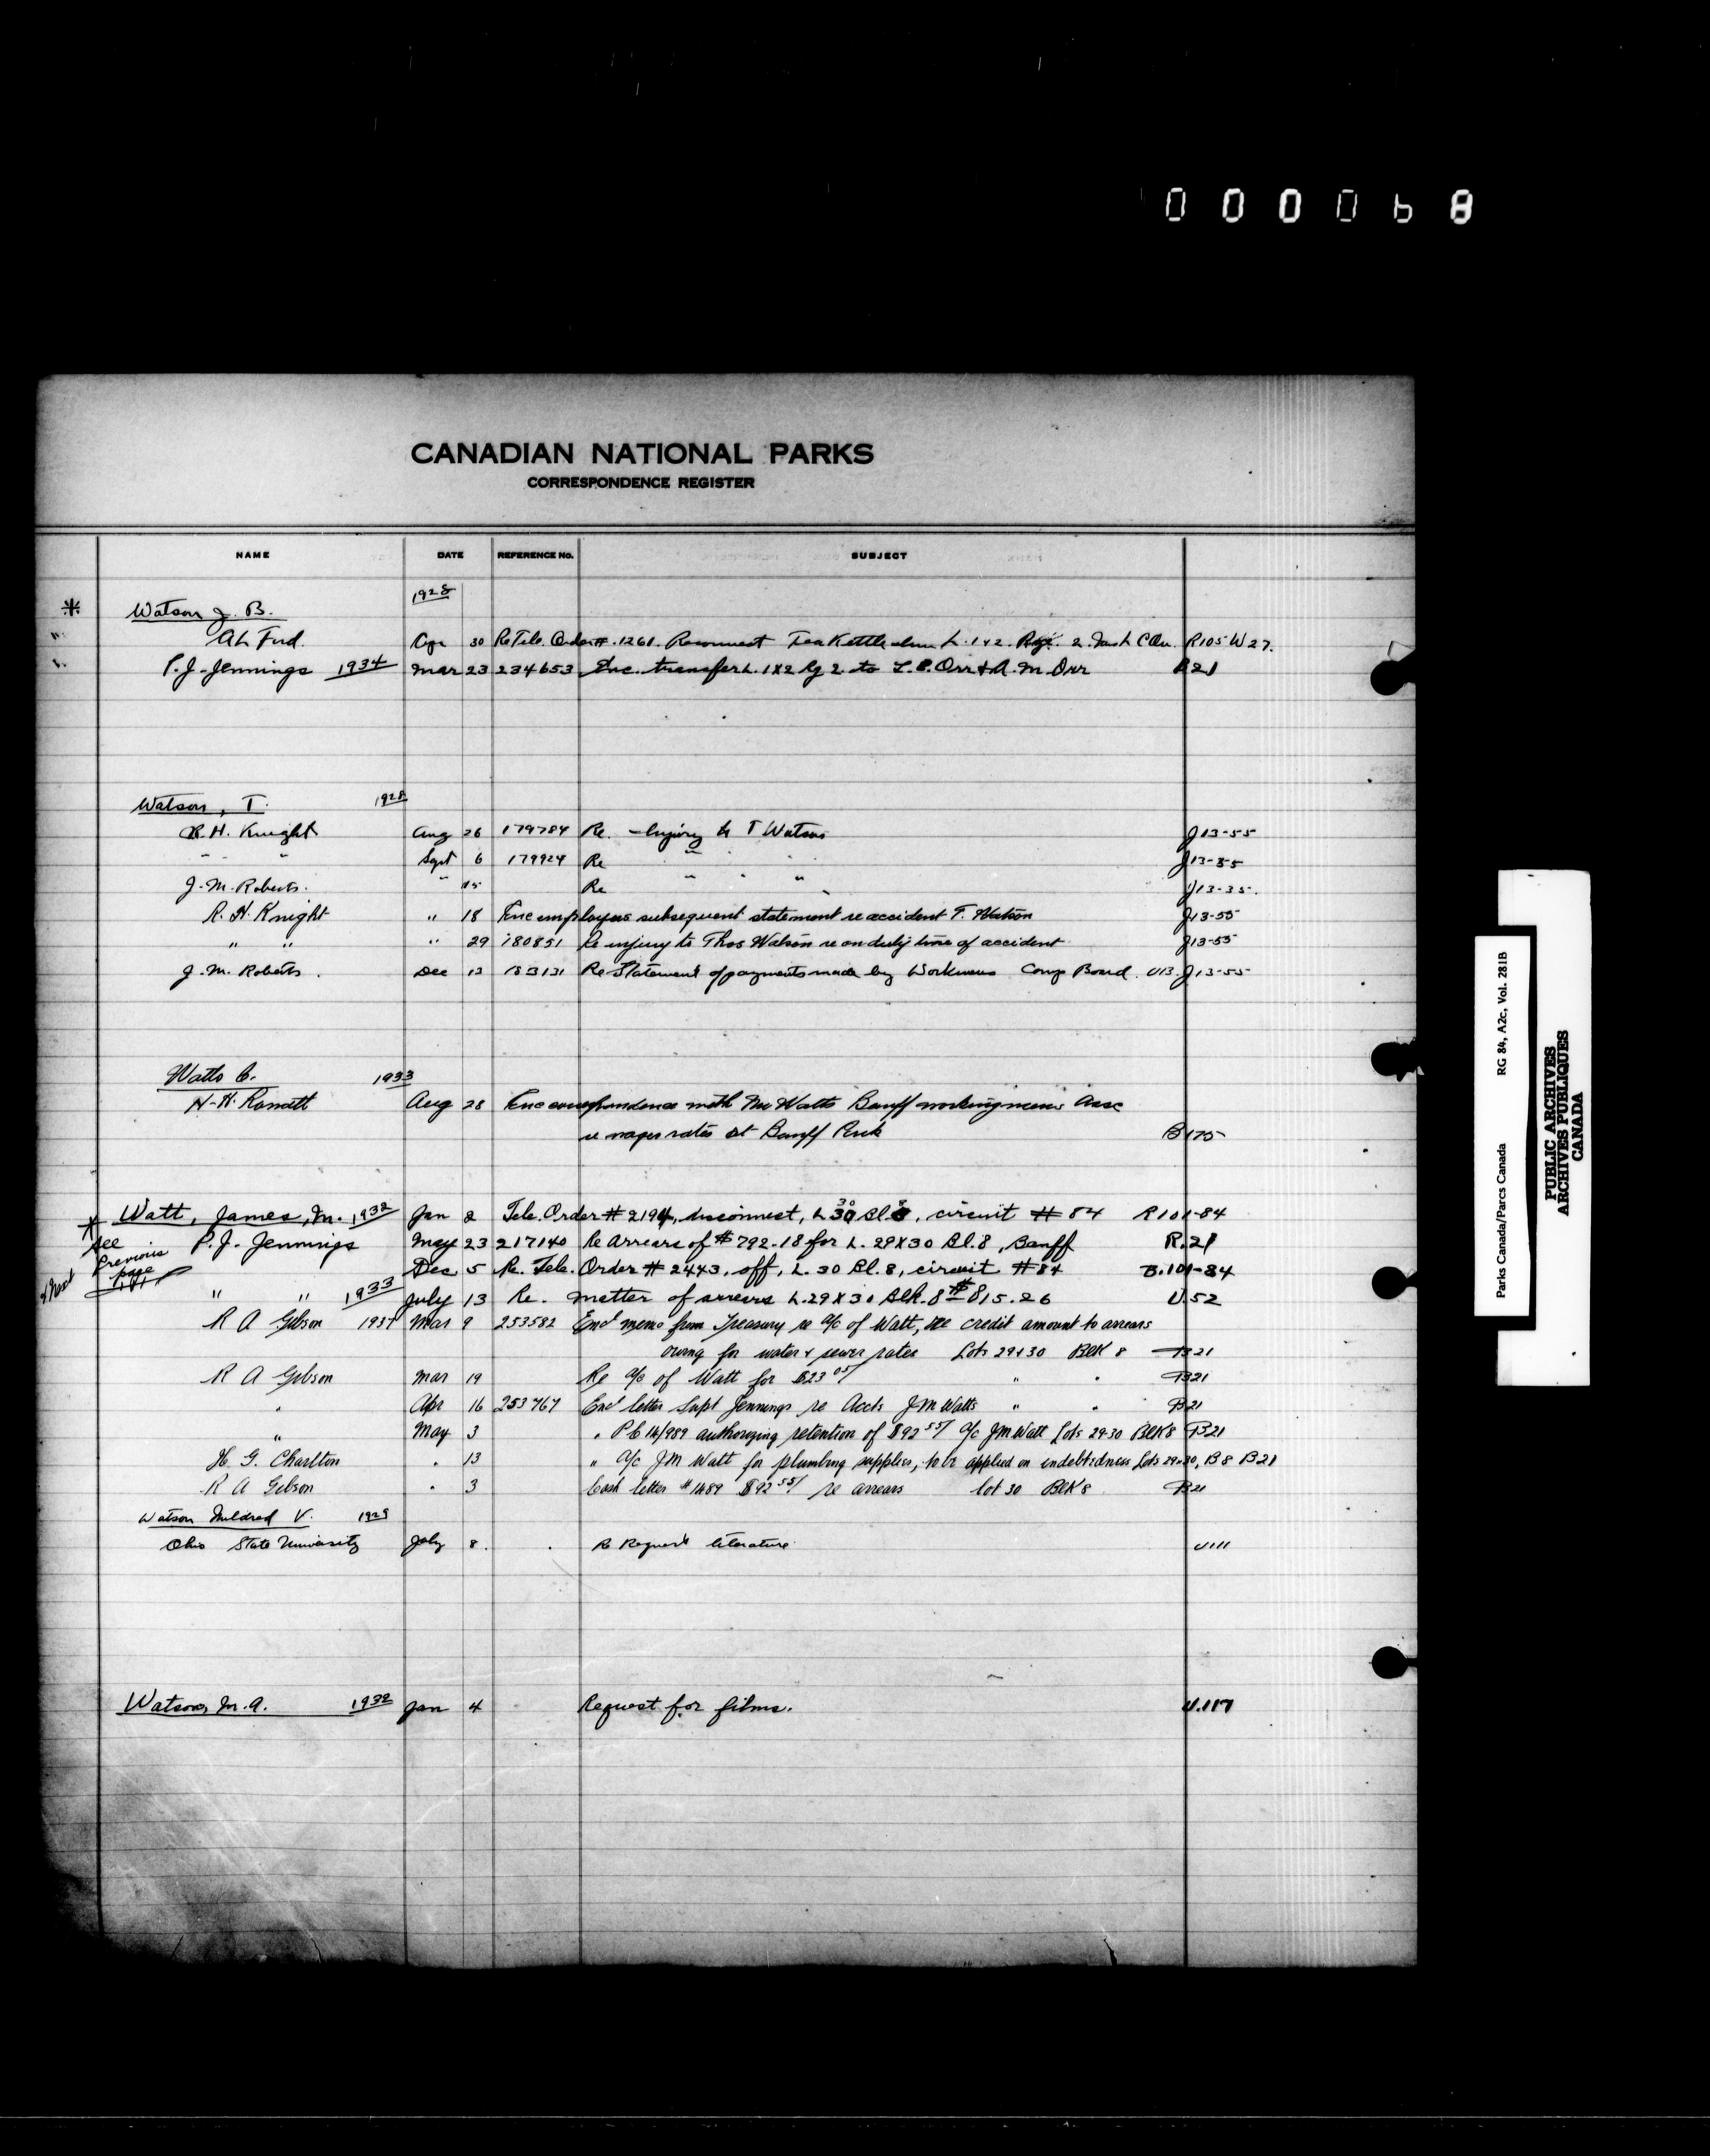 000068
CANADIAN NATIONAL PARKS
CORRESPONDENCE REGISTER
NAME DATE REFERENCE No. SUBJECT
1928
* Watson J. B.
" A L Ford. Apr 30 Re Tele. Order #. 1261. Reconnect Tea Kettle L. 1 & 2. 2. R105 W 27.
" P. J. Jennings 1934 Mar 23 234653 Enc. transfer L. 1 X 2 Rg 2 to L. P. Orr & A. M. Orr B 21
Watson, T. 1928
R. H. Knight Aug 26 179784 Re. Injury to T Watson J 13-55
" " Sept 6 179924 Re " " " J 13-55
J. M. Roberts. " 15 Re " " " J 13-35.
R. H. Knight " 18 Enc employees subsequent statement re accident T. Watson J 13-55
" " " 29 180851 Re injury to Thos Watson re on duty time of accident J 13-55
J. M. Roberts. Dec 13 183131 Re Statement of payments made by Workmens Comp Board. U13. J 13-55
Watts C. 1933
H. H. Aug 28 Enc correspondence with Mr Watts Banff workingmens Assc
re wages rates at Banff Park B 175
* Watt, James, M. 1932 Jan 2 Tele. Order # 2194, disconnect, L 30 Bl. 8, circuit # 84 R 101-84
See Previous page
P. J. Jennings May 23 217140 Re Arrears of $792.18 for L. 29 X 30 Bl. 8, Banff R. 21
Dec 5 Re. Tele. Order # 2443, off, L. 30 Bl. 8, circuit # 84 B. 101-84
" " 1933 July 13 Re. matter of arrears L. 29 X 30 Blk. 8 $815.26 U. 52
R A Gibson 1934 Mar 9 253582 Encl memo from Treasury re a/c of Watt, re credit amount to arrears
owing for water & sewer rates Lots 29 & 30 Blk 8 B21
R A Gibson Mar 19 Re a/c of Watt for $23 05/ " " B21
" Apr 16 253767 Encl letter Supt Jennings re Accts J M Watts " " B21
" May 3 " P C 16/989 authorizing retention of $92 55/ a/c J M Watt Lots 29-30 Blk 8 B21
H. G. Charlton " 13 " a/c J M Watt for plumbing supplies, to be applied on indebtedness Lots 29 & 30, B 8 B21
R A Gibson " 3 Cash letter # 1489 $92 55/ re arrears lot 30 Blk 8 B21
Watson Mildred V. 1929
Ohio State University July 8. Re Request literature U111
Watson, M. A. 1932 Jan 4 Request for films. U.117
Parks Canada/Parcs Canada RG 84, A2c, Vol. 281B
PUBLIC ARCHIVES
ARCHIVES PUBLIQUES
CANADA